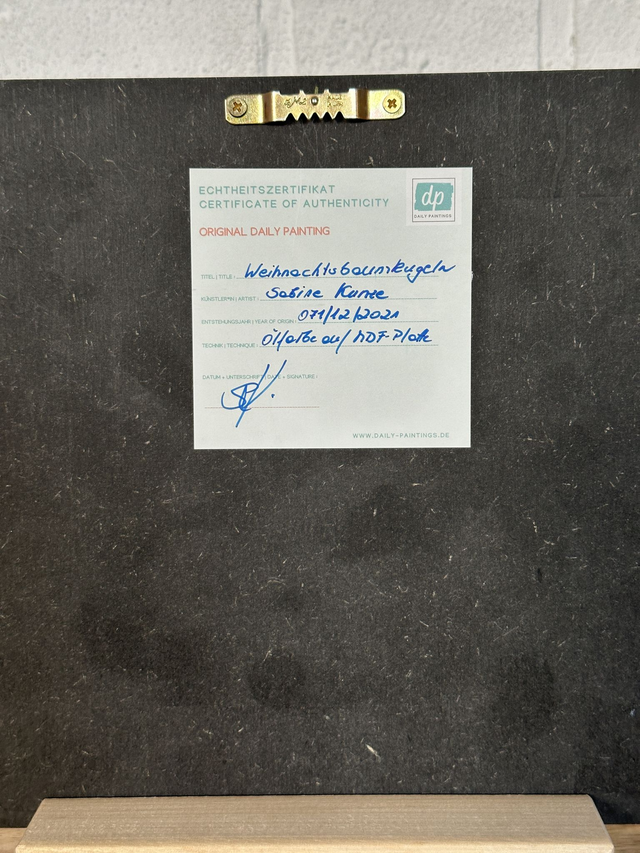 ECHTHEITSZERTIFIKAT
CERTIFICATE OF AUTHENTICITY
dp
DAILY PAINTINGS
ORIGINAL DAILY PAINTING
TITEL | TITLE: Weihnachtsbaumkugeln
KÜNSTLERIN | ARTIST: Sabine Kunze
ENTSTEHUNGSJAHR | YEAR OF ORIGIN: 071/12/2021
TECHNIK | TECHNIQUE: Ölfarbe auf MDF-Platte
DATUM + UNTERSCHRIFT | DATE + SIGNATURE:
WWW.DAILY-PAINTINGS.DE